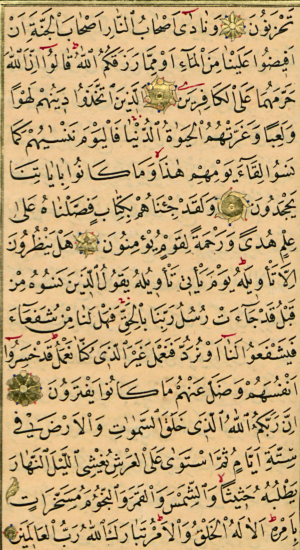 تَحْزَنُونَ وَنَادٰى اَصْحَابُ النَّارِ اَصْحَابَ الْجَنَّةِ اَنْ
اَفِيضُوا عَلَيْنَا مِنَ الْمَاءِ اَوْ مِمَّا رَزَقَكُمُ اللّٰهُ قَالُوا اِنَّ اللّٰهَ
حَرَّمَهُمَا عَلَى الْكَافِرِينَ اَلَّذِينَ اتَّخَذُوا دِينَهُمْ لَهْوًا
وَلَعِبًا وَغَرَّتْهُمُ الْحَيٰوةُ الدُّنْيَا فَالْيَوْمَ نَنْسٰيهُمْ كَمَا
نَسُوا لِقَاءَ يَوْمِهِمْ هٰذَا وَمَا كَانُوا بِاٰيَاتِنَا
يَجْحَدُونَ وَلَقَدْ جِئْنَاهُمْ بِكِتَابٍ فَصَّلْنَاهُ عَلٰى
عِلْمٍ هُدًى وَرَحْمَةً لِقَوْمٍ يُؤْمِنُونَ هَلْ يَنْظُرُونَ
اِلَّا تَأْوِيلَهُ يَوْمَ يَأْتِي تَأْوِيلُهُ يَقُولُ الَّذِينَ نَسُوهُ مِنْ
قَبْلُ قَدْ جَاءَتْ رُسُلُ رَبِّنَا بِالْحَقِّ فَهَلْ لَنَا مِنْ شُفَعَاءَ
فَيَشْفَعُوا لَنَا اَوْ نُرَدُّ فَنَعْمَلَ غَيْرَ الَّذِي كُنَّا نَعْمَلُ قَدْ خَسِرُوا
اَنْفُسَهُمْ وَضَلَّ عَنْهُمْ مَا كَانُوا يَفْتَرُونَ
اِنَّ رَبَّكُمُ اللّٰهُ الَّذِي خَلَقَ السَّمٰوَاتِ وَالْاَرْضَ فِي
سِتَّةِ اَيَّامٍ ثُمَّ اسْتَوٰى عَلَى الْعَرْشِ يُغْشِي الَّيْلَ النَّهَارَ
يَطْلُبُهُ حَثِيثًا وَالشَّمْسَ وَالْقَمَرَ وَالنُّجُومَ مُسَخَّرَاتٍ
بِاَمْرِهِ اَلَا لَهُ الْخَلْقُ وَالْاَمْرُ تَبَارَكَ اللّٰهُ رَبُّ الْعَالَمِينَ